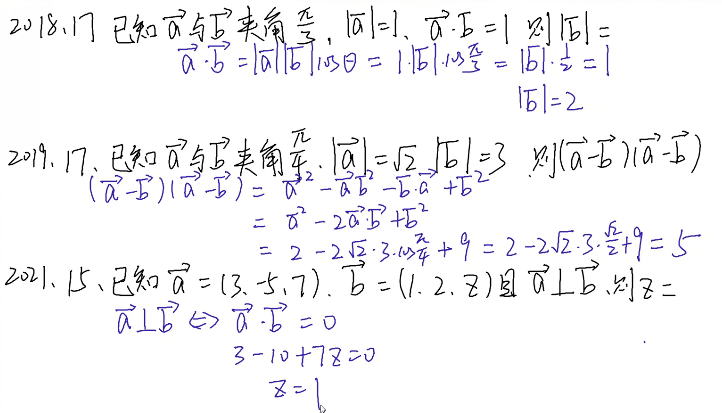 2018.17 已知 a⃗ 与 b⃗ 夹角 π/3, |a⃗|=1, a⃗·b⃗=1 则|b⃗|=
a⃗·b⃗ = |a⃗||b⃗|cosθ = 1·|b⃗|·cos π/3 = |b⃗|·1/2 = 1
|b⃗|=2
2019.17、已知 a⃗ 与 b⃗ 夹角 π/4. |a⃗|=√2 |b⃗|=3 则(a⃗-b⃗)(a⃗-b⃗)
(a⃗-b⃗)(a⃗-b⃗) = a⃗² - a⃗b⃗ - b⃗·a⃗ + b⃗²
= a⃗² - 2a⃗·b⃗ + b⃗²
= 2 - 2√2·3·cos π/4 + 9 = 2 - 2√2·3·√2/2 + 9 = 5
2021.15、已知 a⃗ = (3.-5,7). b⃗ = (1.2.z) 且 a⃗⊥b⃗、则 z =
a⃗⊥b⃗ ⇔ a⃗·b⃗ = 0
3-10+7z=0
z=1